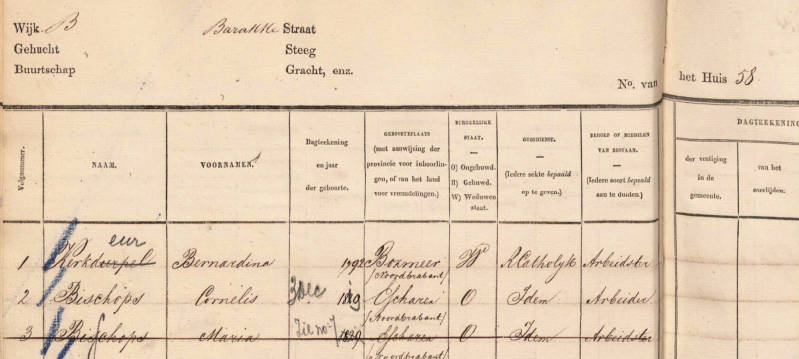 Wijk B Barakke Straat
Gehucht Steeg
Buurtschap Gracht, enz.
No. van het Huis 58
DAGTEEKENING
Volgnummer. NAAM. VOORNAMEN. Dagteekening en jaar der geboorte. GEBOORTEPLAATS (met aanwijzing der provincie voor inboorlingen, of van het land voor vreemdelingen.) BURGERLIJKE STAAT. O) Ongehuwd. H) Gehuwd. W) Weduwenstaat. GODSDIENST. (Iedere sekte bepaald op te geven.) BEROEP OF MIDDELEN VAN BESTAAN. (Iedere soort bepaald aan te duiden.) der vestiging in de gemeente. van het
eur
1 Kerkdurpel Bernardina 1792 Boxmeer W R Catholyk Arbeidster
(Noordbrabant)
2 Bisschops Cornelis 3 Dec 1819 Escharen O Idem Arbeider
(Noordbrabant)
3 Bisschops Maria Zie no 7 1829 Escharen O Idem Arbeidster
(Noordbrabant)